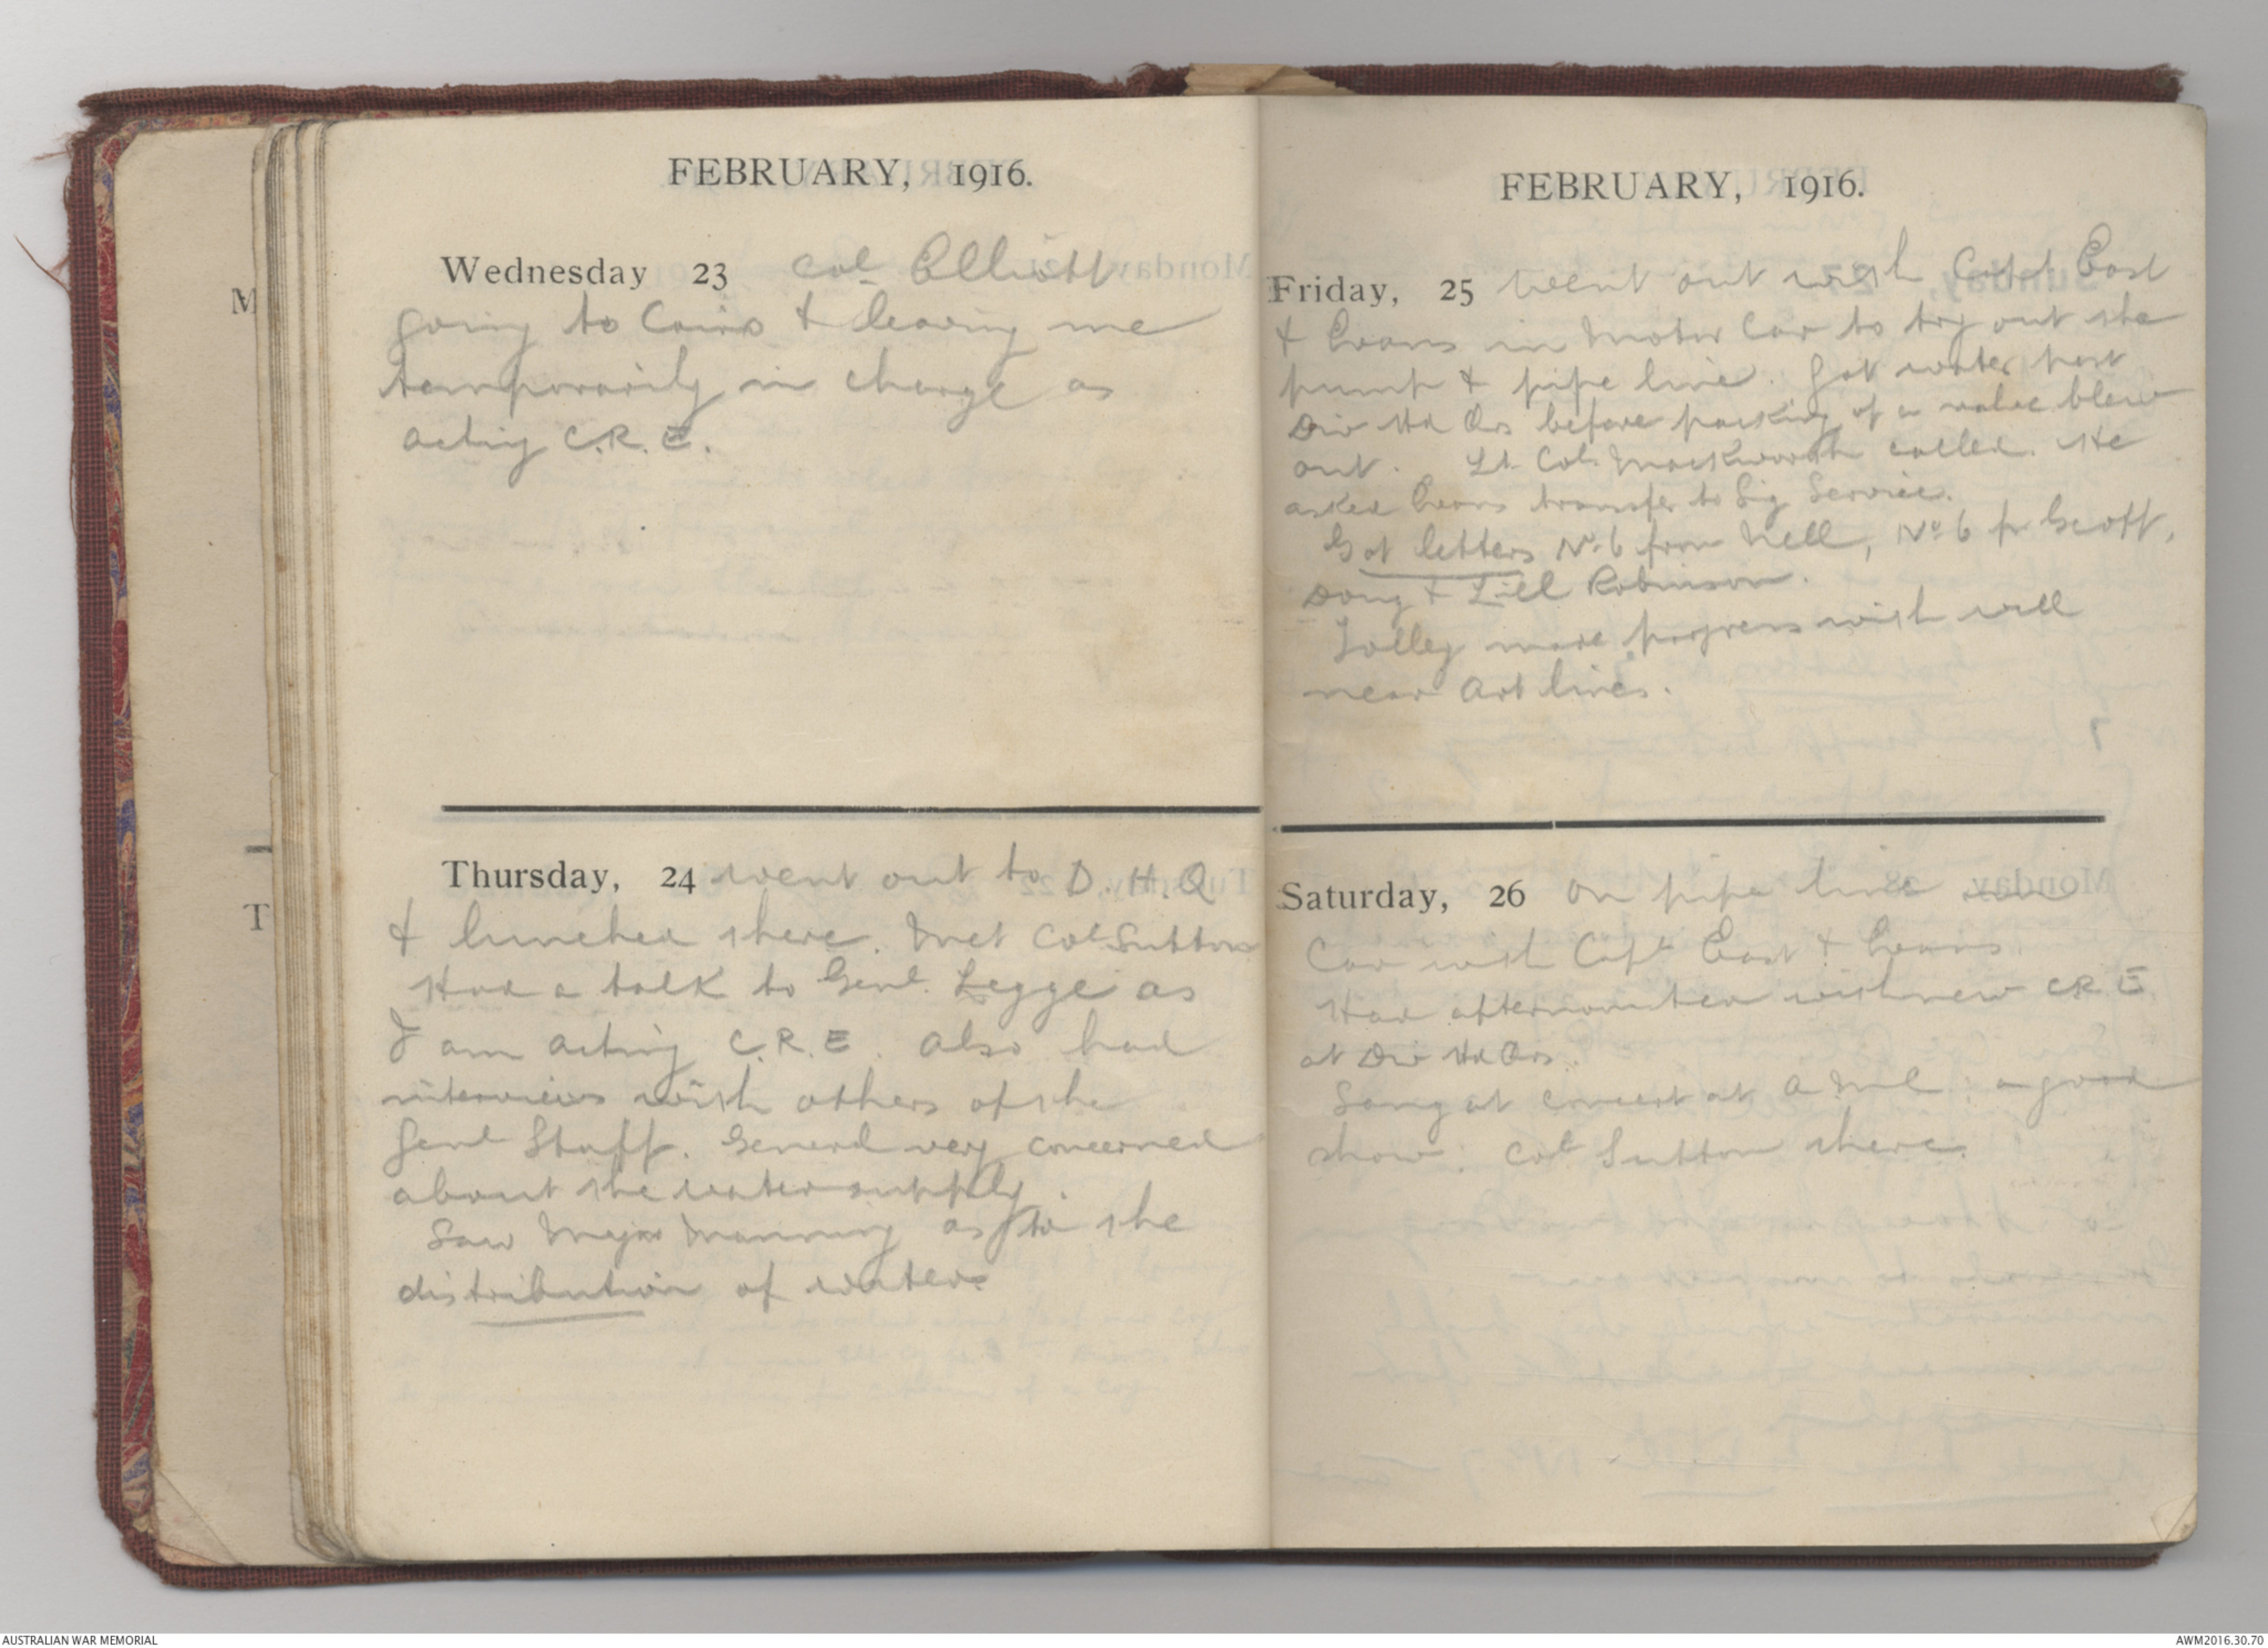 M
T
FEBRUARY, 1916.
Wednesday 23 Col Elliott
going to Cairo & leaving me
temporarily in charge as
acting C.R.E.
Thursday, 24 went out to D.H.Q
& lunched there. Met Col Sutton
Had a talk to Genl. Legge as
I am acting C.R.E. Also had
interviews with others of the
Genl Staff. General very concerned
about the water supply.
Saw Major Manning as to the
distribution of water.
FEBRUARY, 1916.
Friday, 25 went out with Capt East
& Evans in Motor Car to try out the
pump & pipe line. Got water past
Div Hd Qrs before packing of a valve blew
out. Lt. Col. Mackworth called. He
asked Evans transfer to Sig Service.
Got letters No. 6 from Nell, No 6 fr Geoff,
Doug & Lill Robinson.
Tolley made progress with well
near Art lines.
Saturday, 26 on pipe line
Car with Capt East & Evans
Had afternoon tea with new C.R.E.
at Div Hd Qrs.
Sang at concert at a good
show. Col Sutton there.
AUSTRALIAN WAR MEMORIAL
AWM2016.30.70